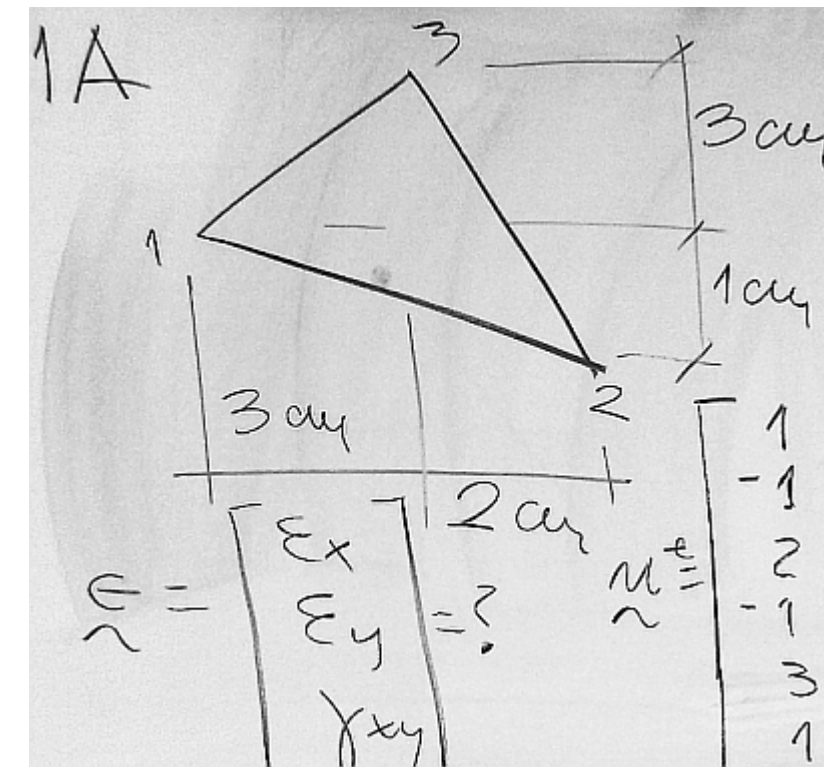 1A
3
3 cm
1
1 cm
2
3 cm
2 cm
ε = [ εx εy γxy ] = ?
u^e = [ 1 -1 2 -1 3 1